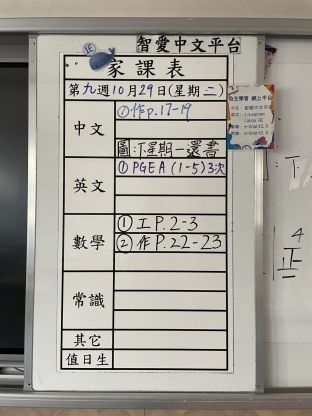 智愛中文平台
家課表
第九週10月29日(星期二)
中文
①作p.17-19
圖:下星期一還書
英文
①PGEA (1-5)3次
數學
①工P.2-3
②作P.22-23
常識
其它
值日生
自主學習 網上平台
下
4
正